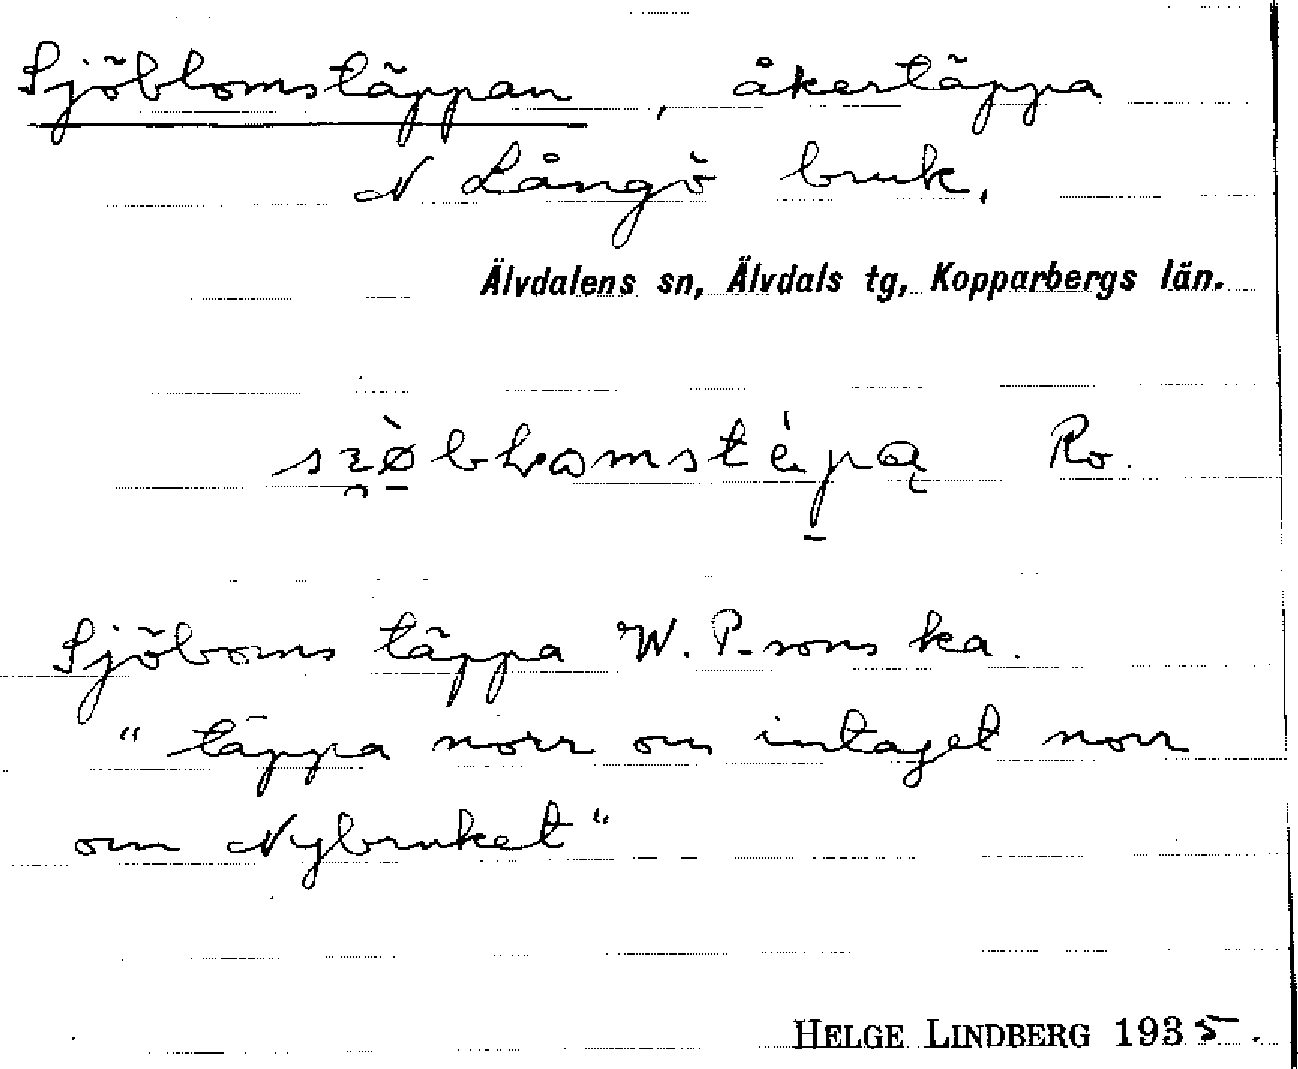 Sjöblomstäppan, åkertäppa
N Långö bruk.
Älvdalens sn, Älvdals tg, Kopparbergs län.
Ro.
Sjöboms täppa W. P-sons ka.
"täppa norr om intaget norr
om Nybruket"
HELGE LINDBERG 1935.